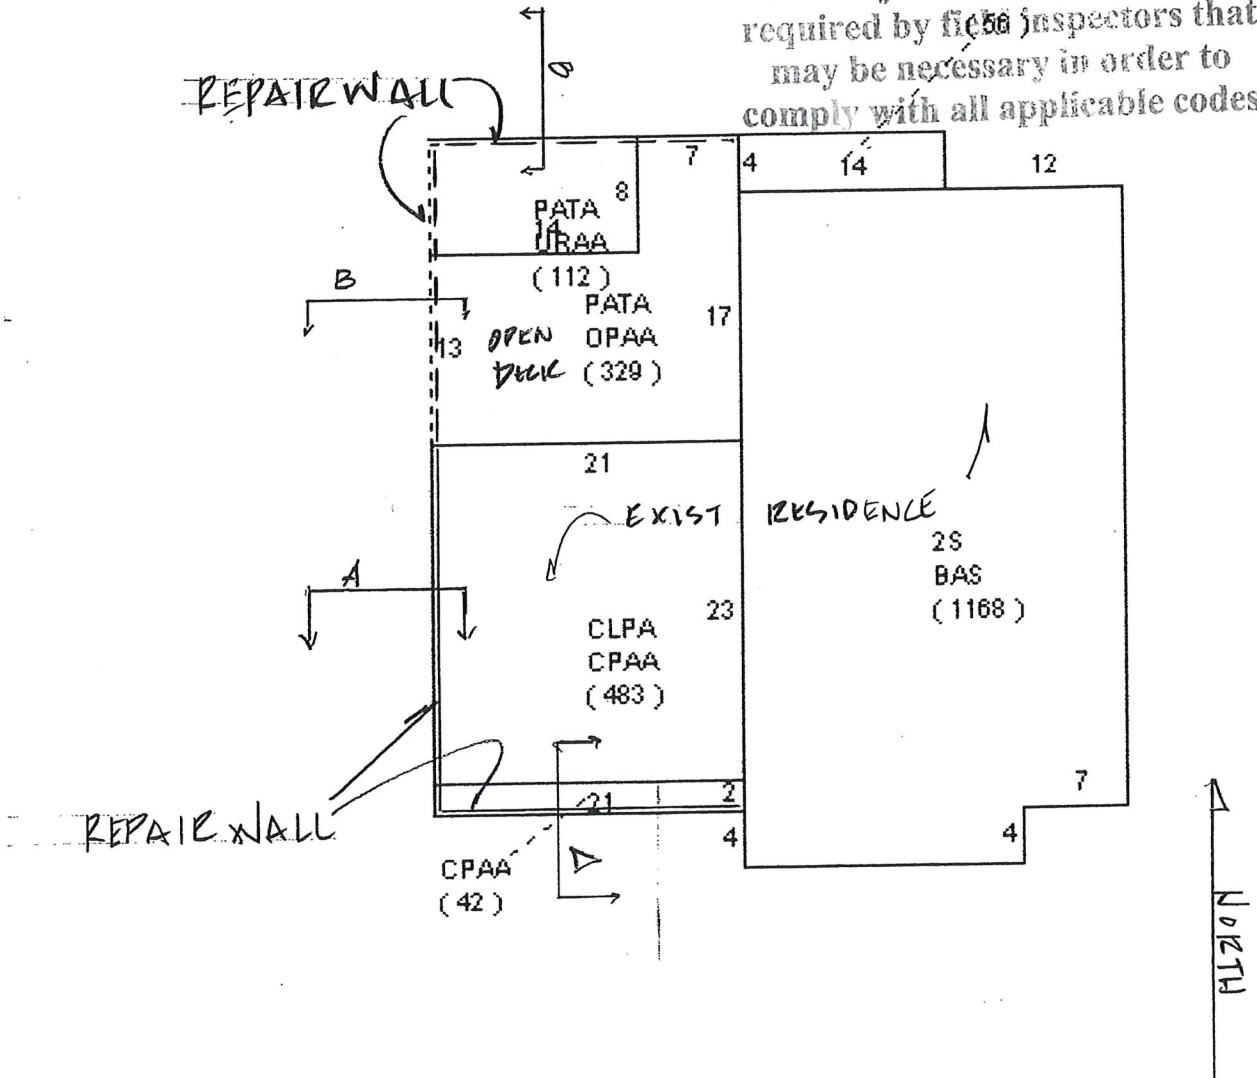 required by field inspectors that
(56)
may be necessary in order to
comply with all applicable codes
REPAIR WALL
B
7
4
14
12
8
PATA
14
URAA
(112)
B
PATA
17
13
OPEN
OPAA
DECK
(329)
21
EXIST RESIDENCE
2S
BAS
(1168)
A
23
CLPA
CPAA
(483)
7
2
21
REPAIR WALL
4
4
A
CPAA
(42)
NORTH